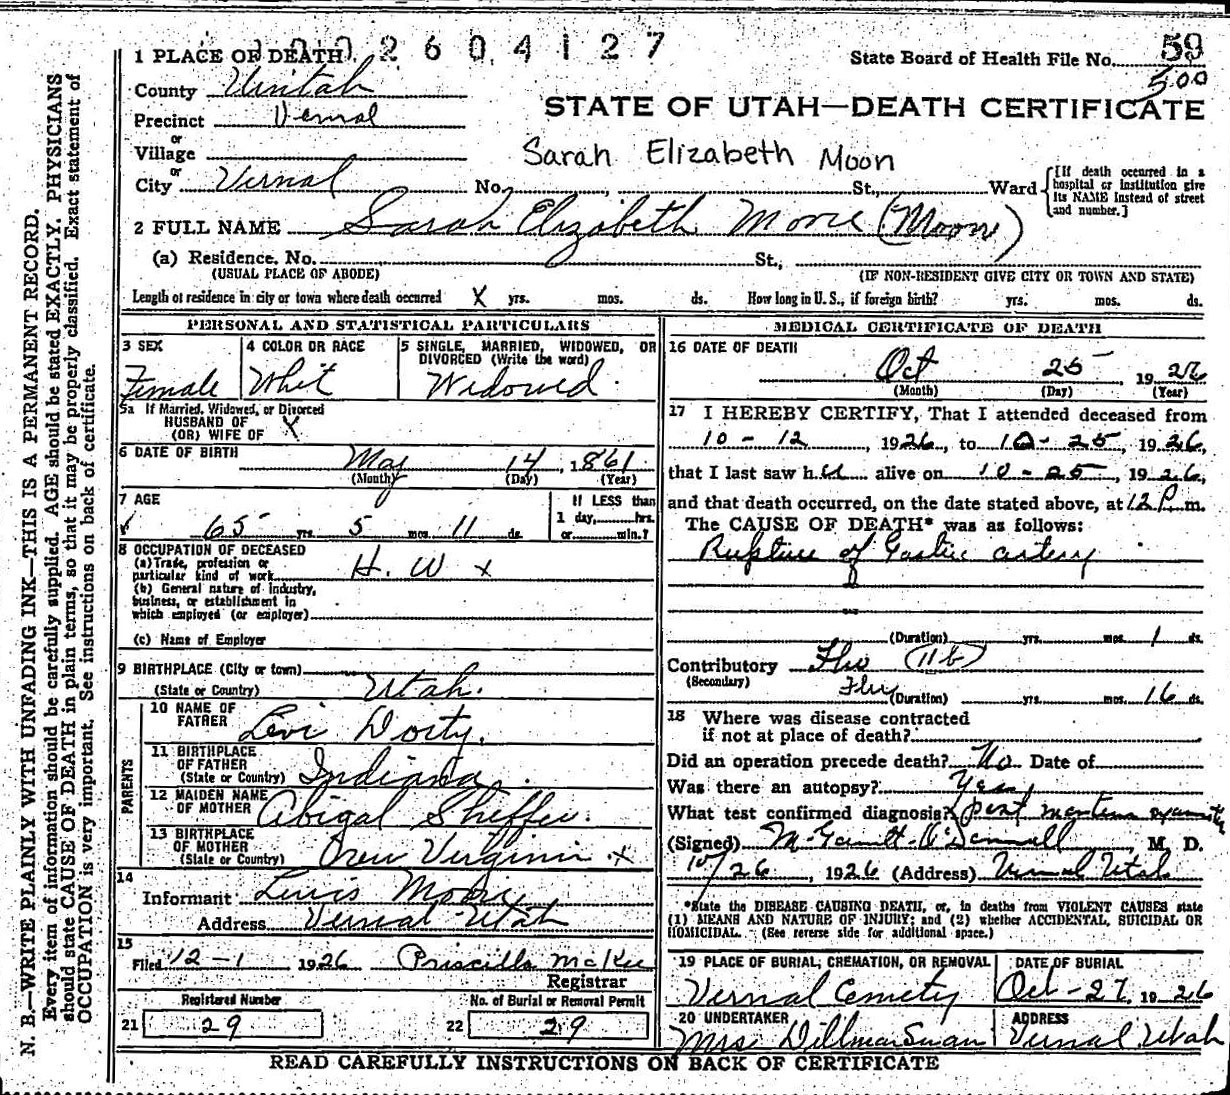 1 PLACE OF DEATH 2 6 0 4 1 2 7
State Board of Health File No. 59
500
County Uintah
STATE OF UTAH—DEATH CERTIFICATE
Precinct Vernal
or
Village
Sarah Elizabeth Moon
or
City Vernal No. , St., Ward
[If death occurred in a
hospital or institution give
its NAME instead of street
and number.]
2 FULL NAME Sarah Elizabeth Moore (Moon)
(a) Residence, No. St.,
(USUAL PLACE OF ABODE) (IF NON-RESIDENT GIVE CITY OR TOWN AND STATE)
Length of residence in city or town where death occurred X yrs. mos. ds. How long in U. S., if foreign birth? yrs. mos. ds.
PERSONAL AND STATISTICAL PARTICULARS
3 SEX
Female
4 COLOR OR RACE
Whit
5 SINGLE, MARRIED, WIDOWED, OR
DIVORCED (Write the word)
Widowed
5a If Married, Widowed, or Divorced
HUSBAND OF
(OR) WIFE OF X
6 DATE OF BIRTH May 14, 1861
(Month) (Day) (Year)
7 AGE
65 yrs. 5 mos. 11 ds.
If LESS than
1 day, hrs.
or min.?
8 OCCUPATION OF DECEASED
(a) Trade, profession or
particular kind of work H. W x
(b) General nature of industry,
business, or establishment in
which employed (or employer)
(c) Name of Employer
9 BIRTHPLACE (City or town)
(State or Country) Utah.
PARENTS
10 NAME OF
FATHER Levi Dorty.
11 BIRTHPLACE
OF FATHER
(State or Country) Indiana.
12 MAIDEN NAME
OF MOTHER Abigal Sheffer.
13 BIRTHPLACE
OF MOTHER
(State or Country) Virginia x
14
Informant Lewis Moore
Address Vernal Utah
15
Filed 12-1 1926 Priscilla McKee
Registrar
Registered Number No. of Burial or Removal Permit
21 29 22 29
MEDICAL CERTIFICATE OF DEATH
16 DATE OF DEATH
Oct 25 1926
(Month) (Day) (Year)
17 I HEREBY CERTIFY, That I attended deceased from
10-12, 1926, to 10-25, 1926,
that I last saw her alive on 10-25, 1926,
and that death occurred, on the date stated above, at 12 P. m.
The CAUSE OF DEATH* was as follows:
Rupture of Gastric artery
(Duration) yrs. mos. 1 ds.
Contributory Flu (11b)
(Secondary)
Flu (Duration) yrs. mos. 16 ds.
18 Where was disease contracted
if not at place of death?
Did an operation precede death? No Date of
Was there an autopsy? Yes
What test confirmed diagnosis? post mortem
(Signed) M. D.
10/26, 1926 (Address) Vernal Utah
*State the DISEASE CAUSING DEATH, or, in deaths from VIOLENT CAUSES state
(1) MEANS AND NATURE OF INJURY; and (2) whether ACCIDENTAL, SUICIDAL OR
HOMICIDAL. (See reverse side for additional space.)
19 PLACE OF BURIAL, CREMATION, OR REMOVAL
Vernal Cemetry
DATE OF BURIAL
Oct-27, 1926
20 UNDERTAKER
Mrs Dillman Swan
ADDRESS
Vernal Utah
READ CAREFULLY INSTRUCTIONS ON BACK OF CERTIFICATE
N. B.—WRITE PLAINLY WITH UNFADING INK—THIS IS A PERMANENT RECORD.
Every item of information should be carefully supplied. AGE should be stated EXACTLY. PHYSICIANS
should state CAUSE OF DEATH in plain terms, so that it may be properly classified. Exact statement of
OCCUPATION is very important. See instructions on back of certificate.